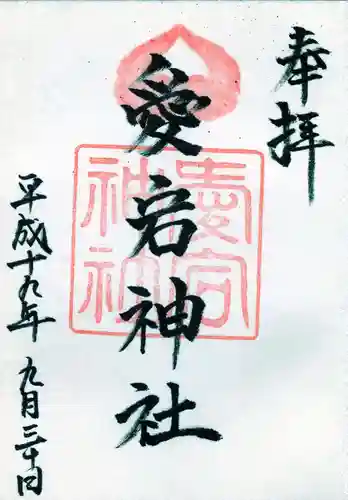 奉拝
愛宕神社
愛宕神社
平成十九年九月三十日